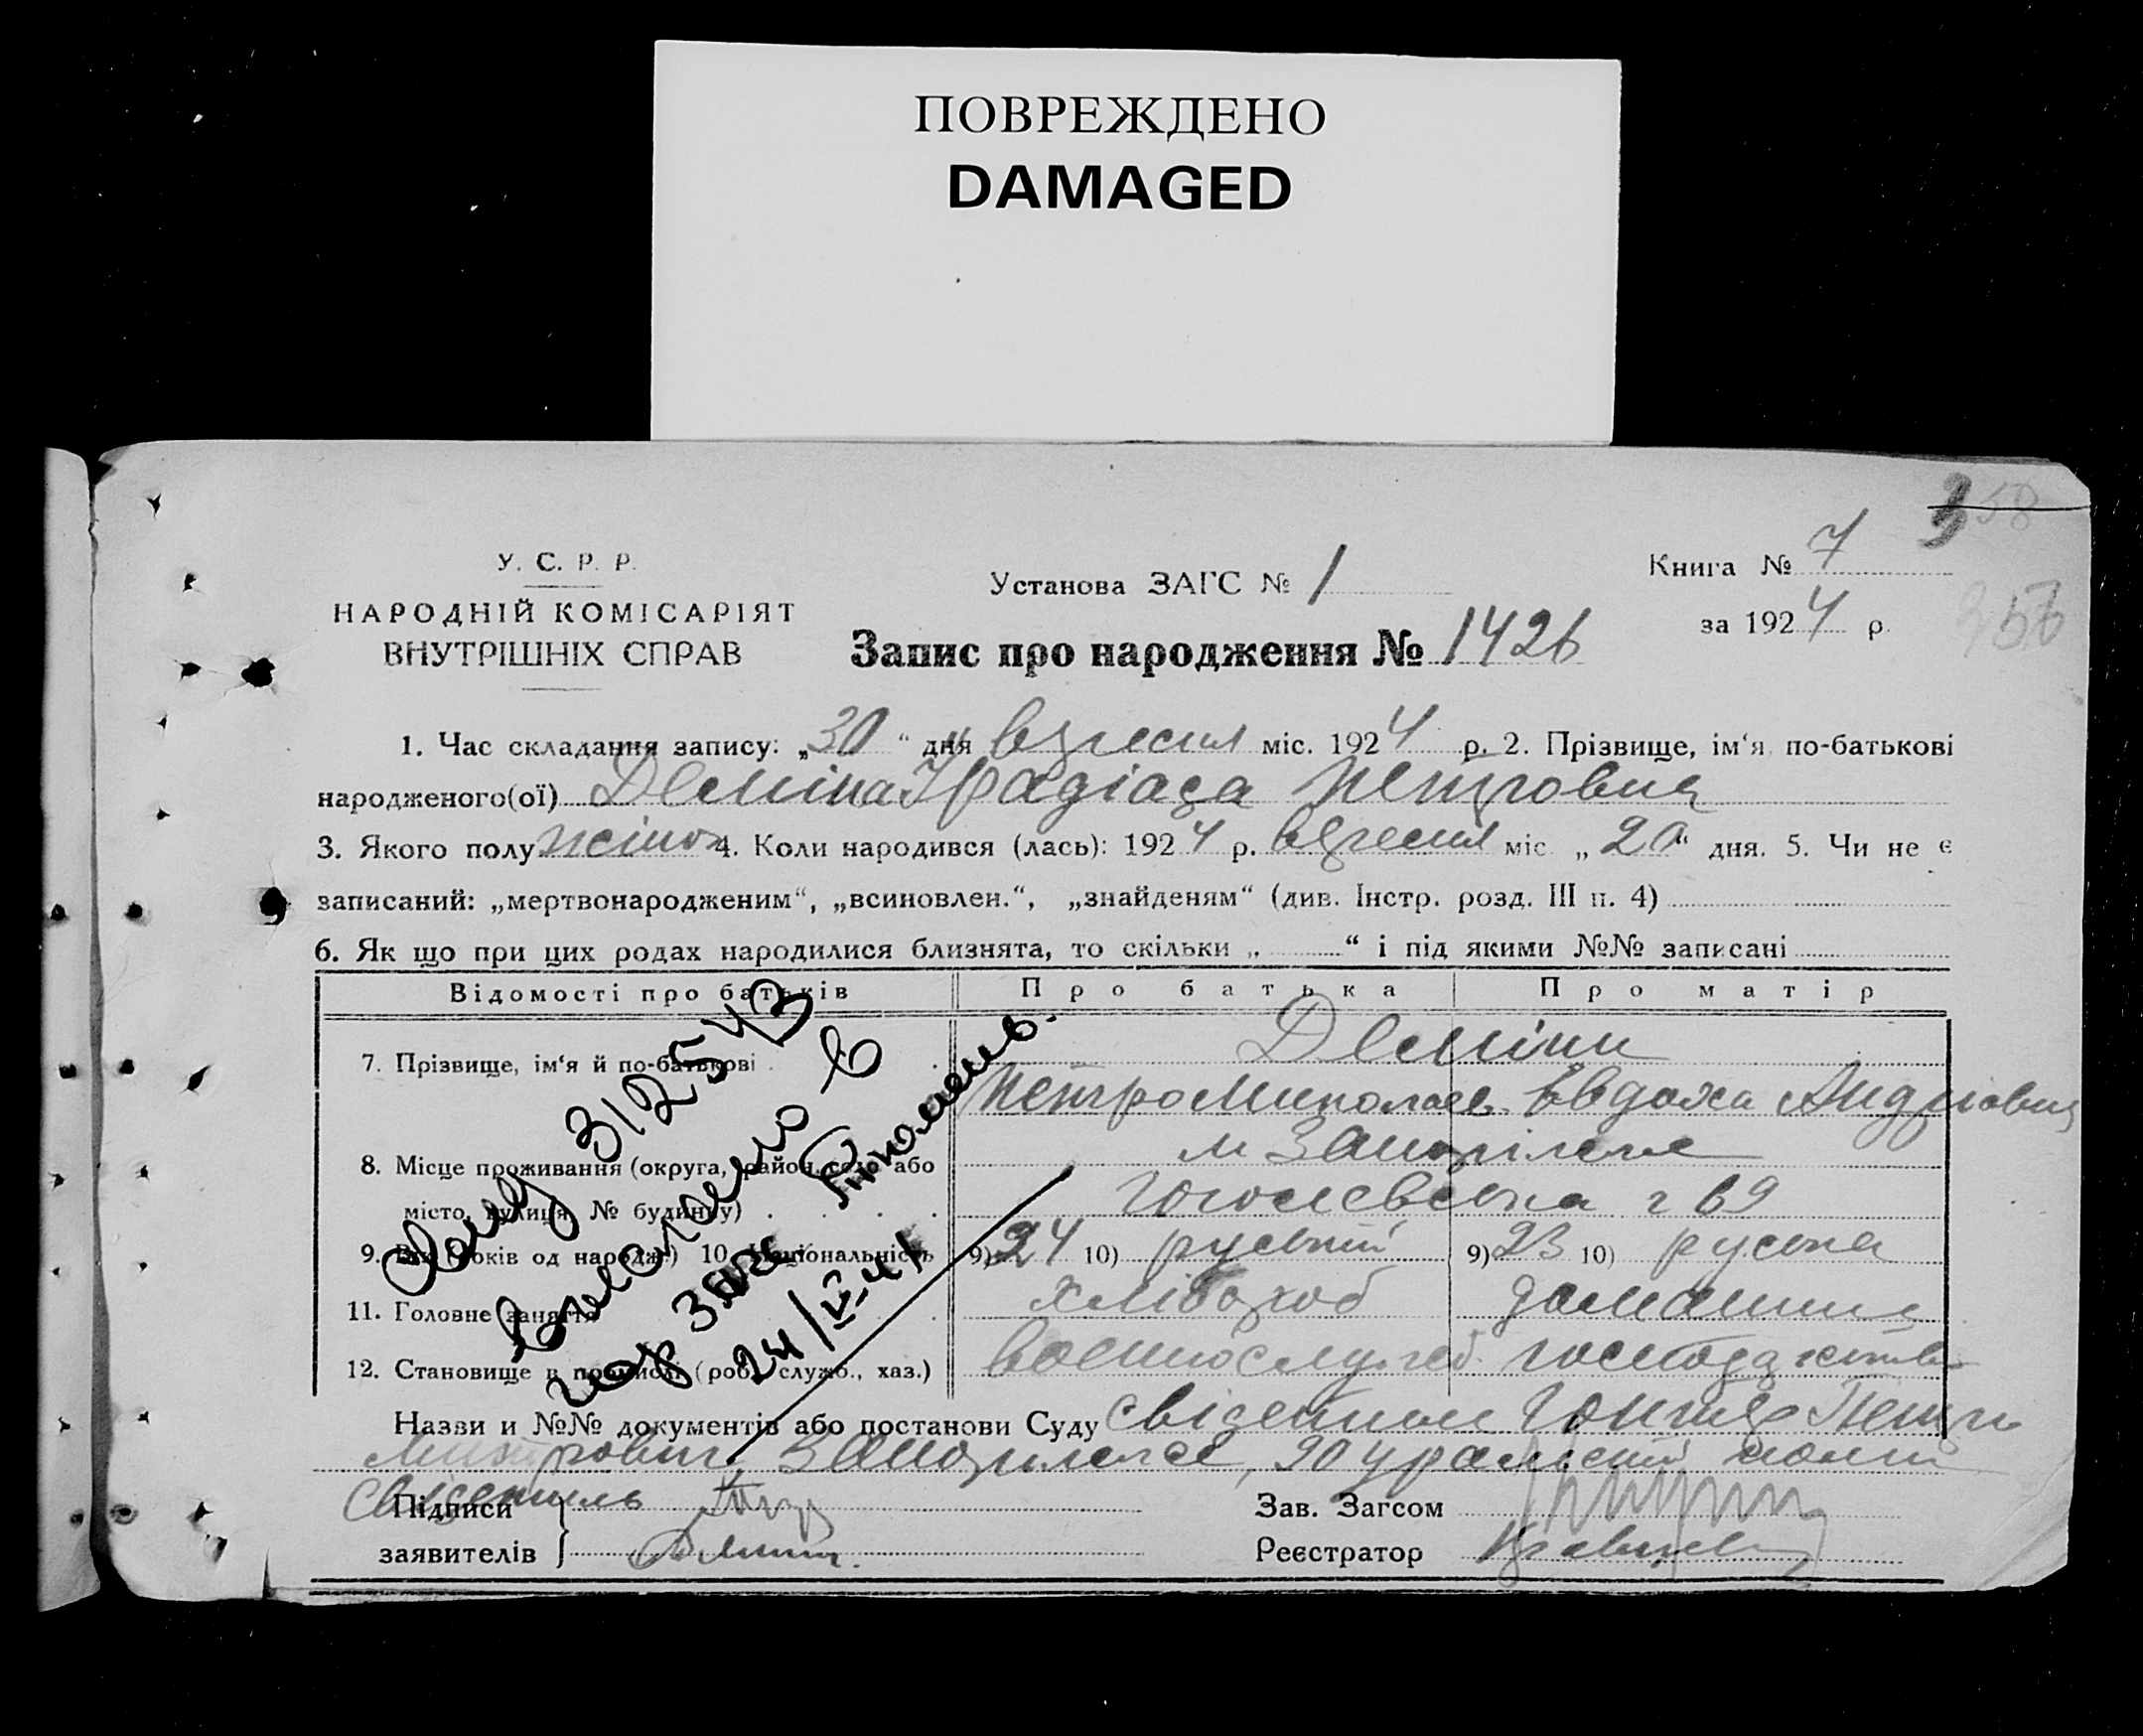 ПОВРЕЖДЕНО
DAMAGED
358
356
У. С. Р. Р.
НАРОДНІЙ КОМІСАРІЯТ
ВНУТРІШНІХ СПРАВ
Установа ЗАГС № 1
Книга № 7
за 1924 р.
Запис про народження № 1426
1. Час складання запису: „30“ дня вересня міс. 1924 р. 2. Прізвище, ім‘я по-батькові
народженого(ої) Деміна Петровна
3. Якого полу жіноч 4. Коли народився (лась): 1924 р. вересня міс. „20“ дня. 5. Чи не є
записаний: „мертвонародженим“, „всиновлен.“, „знайденям“ (див. Інстр. розд. III п. 4)
6. Як що при цих родах народилися близнята, то скільки „ “ і під якими №№ записані
Відомості про батьків Про батька Про матір
7. Прізвище, ім‘я й по-батькові Деміни
Петро Миколаев. Євдоха Андріовна
8. Місце проживання (округа, район, село або м Запоріжже
місто, вулиця, № будинку) Гоголевська 69
9. Вік (років од народж.) 10. Національність 9) 24 10) руський 9) 23 10) руська
11. Головне заняття хлібороб домашнє
12. Становище в промислі (роб., служб., хаз.) военнослужб. господарство
312543
24/VI-41
Назви и №№ документів або постанови Суду свідетили Петро
Запоріжжя, 90 уральский полк
Свідетиль
Підписи
заявителів Демин.
Зав. Загсом
Реєстратор